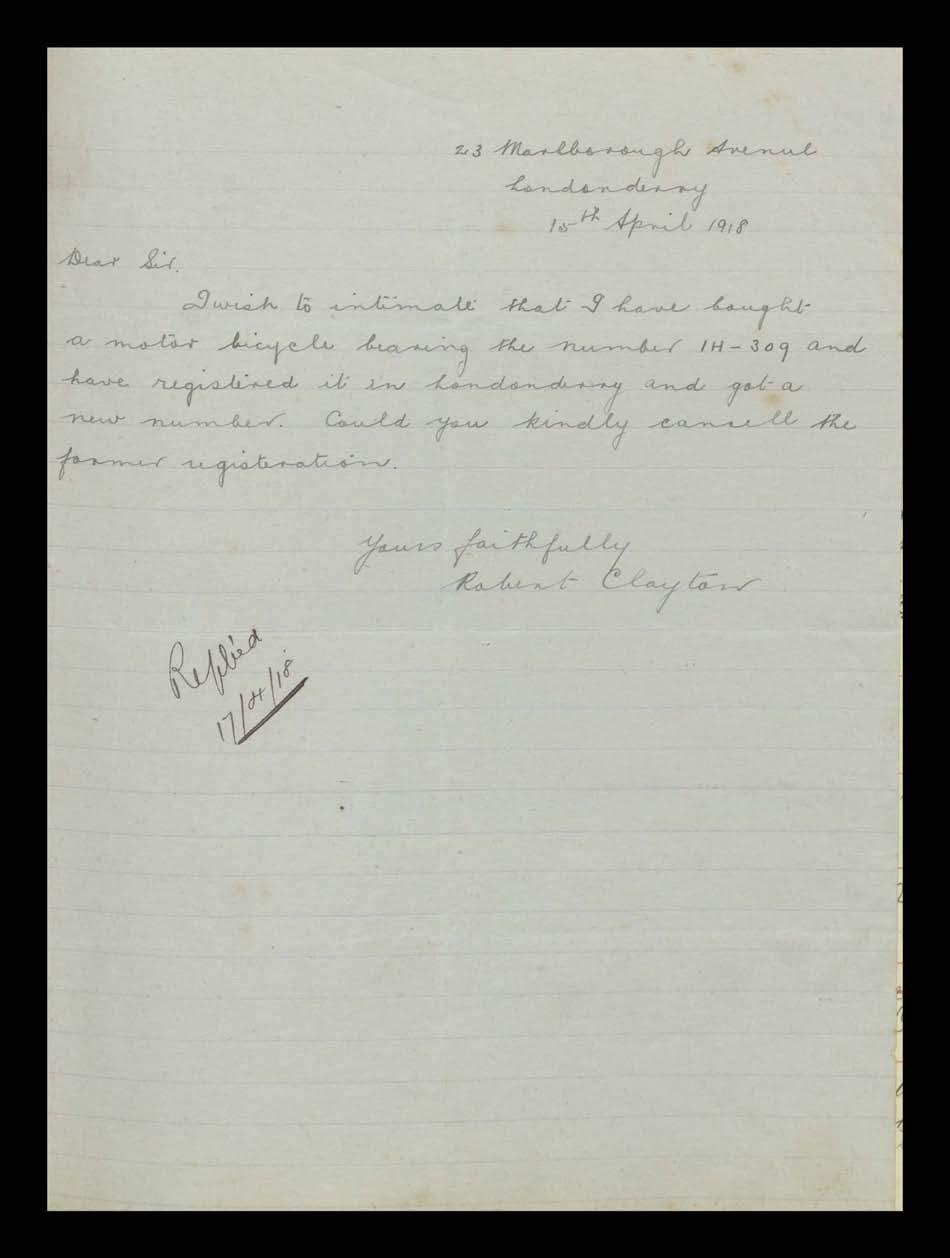 23 Marlborough Avenue
Londonderry
15th April 1918
Dear Sir.
I wish to intimate that I have bought
a motor bicycle bearing the number IH-309 and
have registered it in Londonderry and got a
new number. Could you kindly cancell the
former registeration.
Yours faithfully
Robert Clayton
Replied
17/4/18